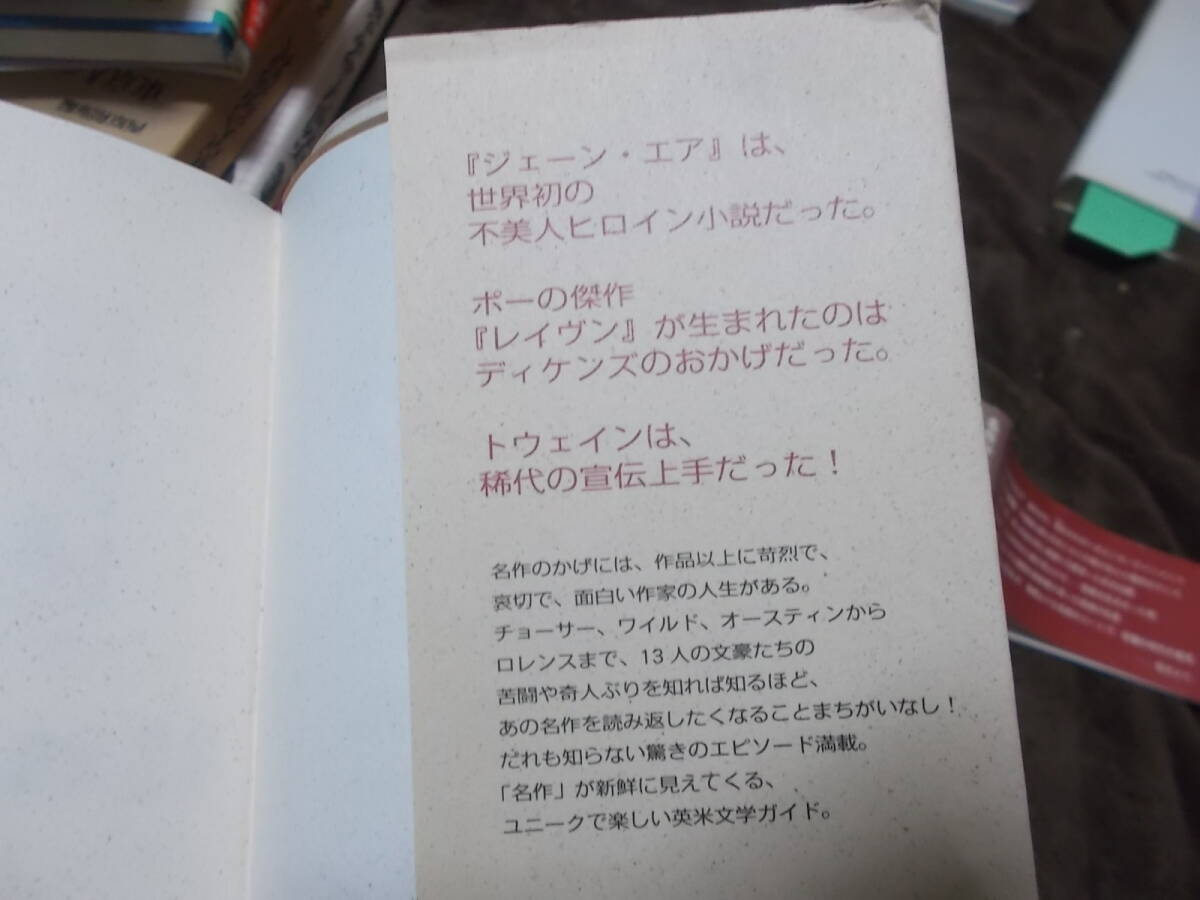 『ジェーン・エア』は、
世界初の
不美人ヒロイン小説だった。
ポーの傑作
『レイヴン』が生まれたのは
ディケンズのおかげだった。
トウェインは、
稀代の宣伝上手だった！
名作のかげには、作品以上に苛烈で、
哀切で、面白い作家の人生がある。
チョーサー、ワイルド、オースティンから
ロレンスまで、13人の文豪たちの
苦闘や奇人ぶりを知れば知るほど、
あの名作を読み返したくなることまちがいなし！
だれも知らない驚きのエピソード満載。
「名作」が新鮮に見えてくる、
ユニークで楽しい英米文学ガイド。